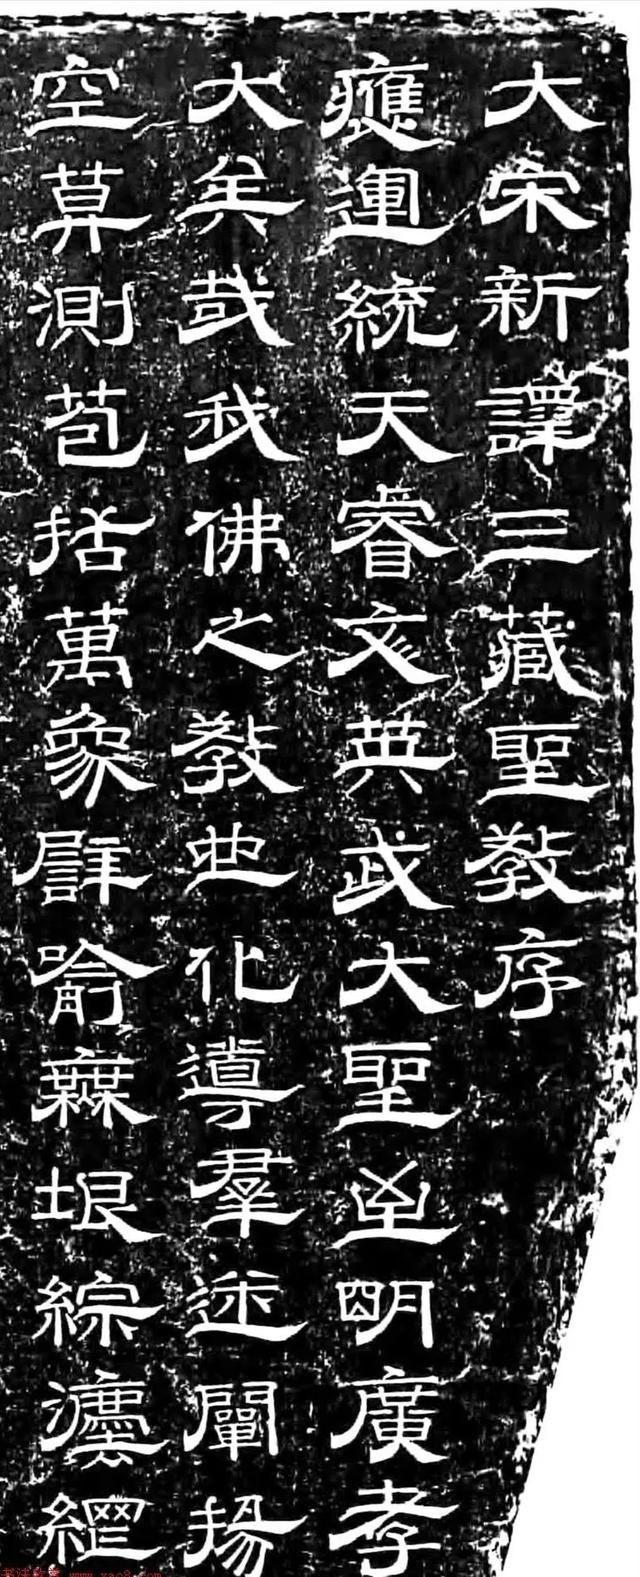 大宋新譯三藏聖教序
應運統天睿文英武大聖至明廣孝
大矣哉我佛之教也化導羣迷闡揚
空算測苞括萬象譬喻無垠綜灋網
www.yac8.com